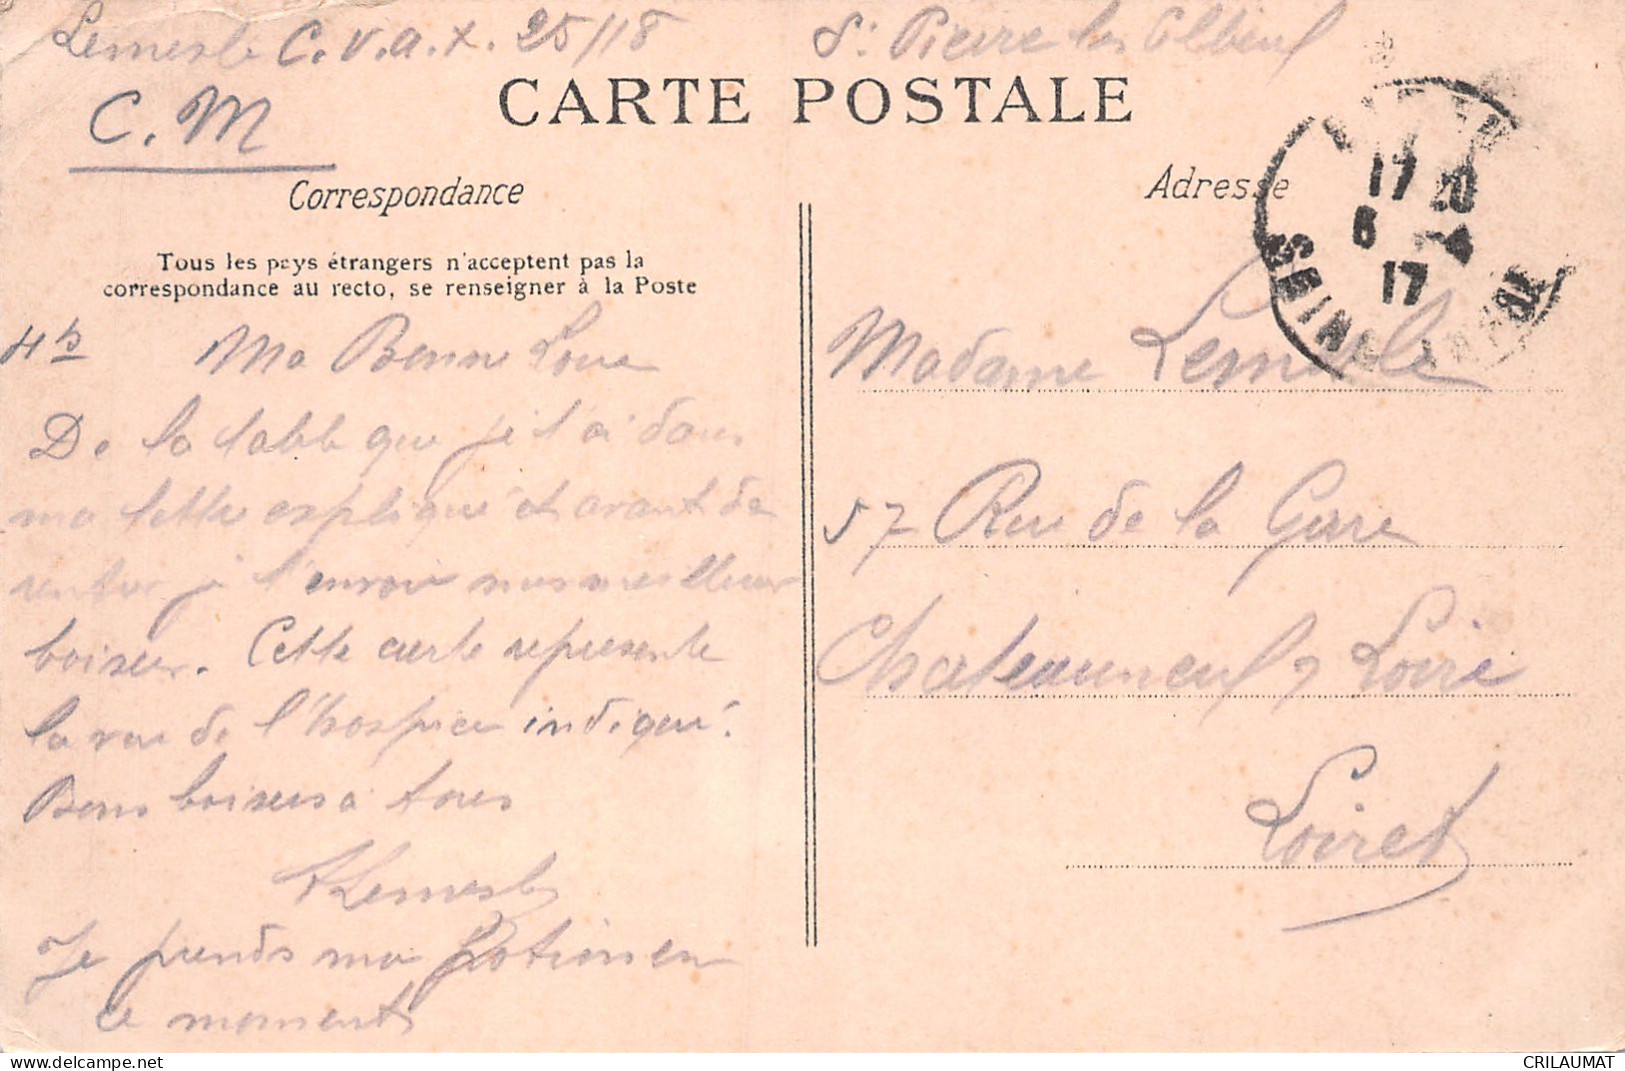 Lemesle C.V.a.x. 25/18 St Pierre les Elbeuf
C.M
CARTE POSTALE
Correspondance
Adresse
Tous les pays étrangers n'acceptent pas la
correspondance au recto, se renseigner à la Poste
17 20
6 4
17
SEINE INFRE
4h Ma Bonne
De la table que je t'ai dans
ma lettre expliqué et avant de
rentrer je t'envoie mes meilleur
baiser. Cette carte represente
la rue de l'hospice indiqué.
Bons baisers a tous
Lemesle
Je prends ma potion en
ce moment
Madame Lemesle
57 Rue de la Gare
Chateauneuf s Loire
Loiret
CRILAUMAT
delcampe.net